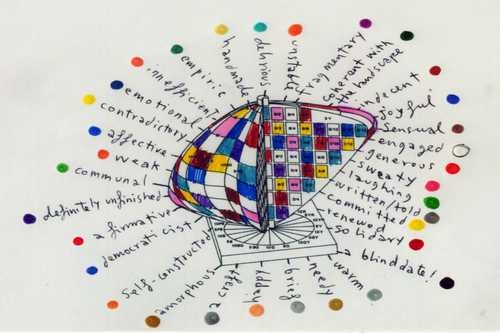 handmade
delirious
unstable
fragmentary
coherant with
the landscape
indecent
joyful
sensual
engaged
generous
sweaty
laughing
written/told
committed
renewed
solidary
a blind date!
warm
needy
brief
happy
a craft
amorphous
self-constructed
democratic ist
affirmative
definitely unfinished
communal
weak
affective
contradictory
emotional
inefficient
empiric